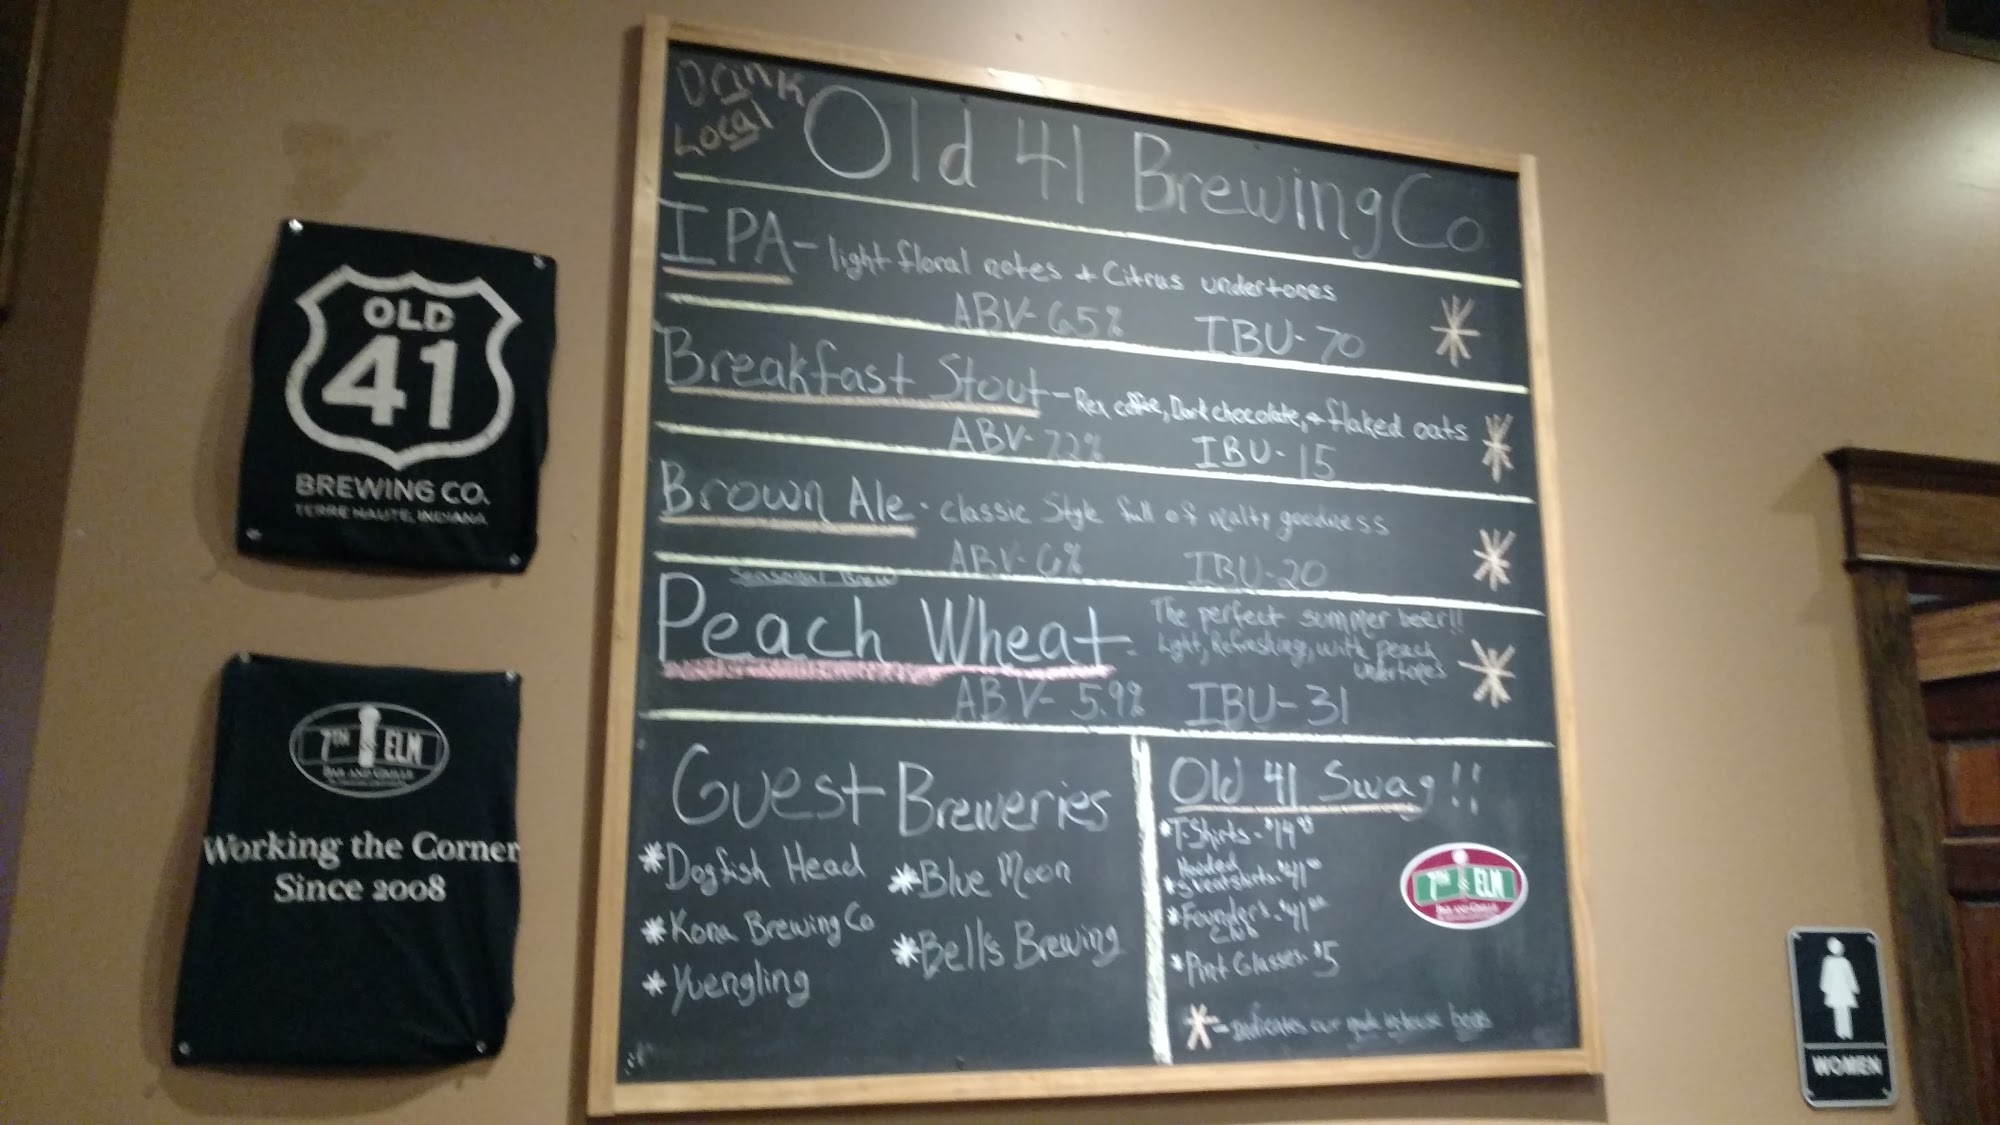 Drink
Local
Old 41 Brewing Co
IPA - light floral notes + Citrus undertones
ABV- 6.5% IBU- 70
Breakfast Stout - Rex coffee, Dark chocolate, + flaked oats
ABV- 7.2% IBU- 15
Brown Ale - classic Style full of malty goodness
ABV- 6% IBU- 20
Seasonal Brew
Peach Wheat - The perfect summer beer!!
Light, Refreshing, with peach
undertones
ABV- 5.9% IBU- 31
Guest Breweries
*Dogfish Head
*Kona Brewing Co
*Yuengling
*Blue Moon
*Bell's Brewing
Old 41 Swag!!
*T-Shirts - $19
Hooded
*Sweatshirts - $41
*Founder's - $41
Club
*Pint Glasses - $5
- Indicates our made in house beers
7TH ELM
BAR AND GRILLE
OLD
41
BREWING CO.
TERRE HAUTE, INDIANA
7TH ELM
BAR AND GRILLE
Working the Corner
Since 2008
WOMEN